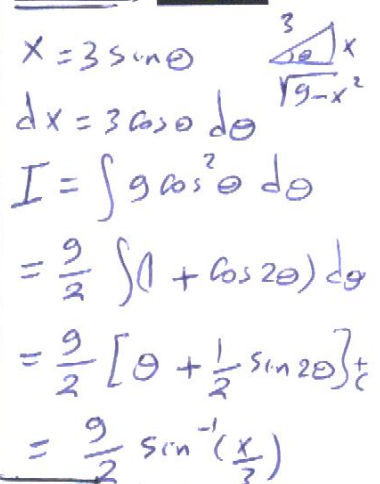 x = 3 sinθ
3
θ
x
√9-x²
dx = 3 cosθ dθ
I = ∫ 9 cos²θ dθ
= 9/2 ∫(1 + cos 2θ) dθ
= 9/2 [θ + 1/2 sin 2θ] + c
= 9/2 sin⁻¹(x/3)